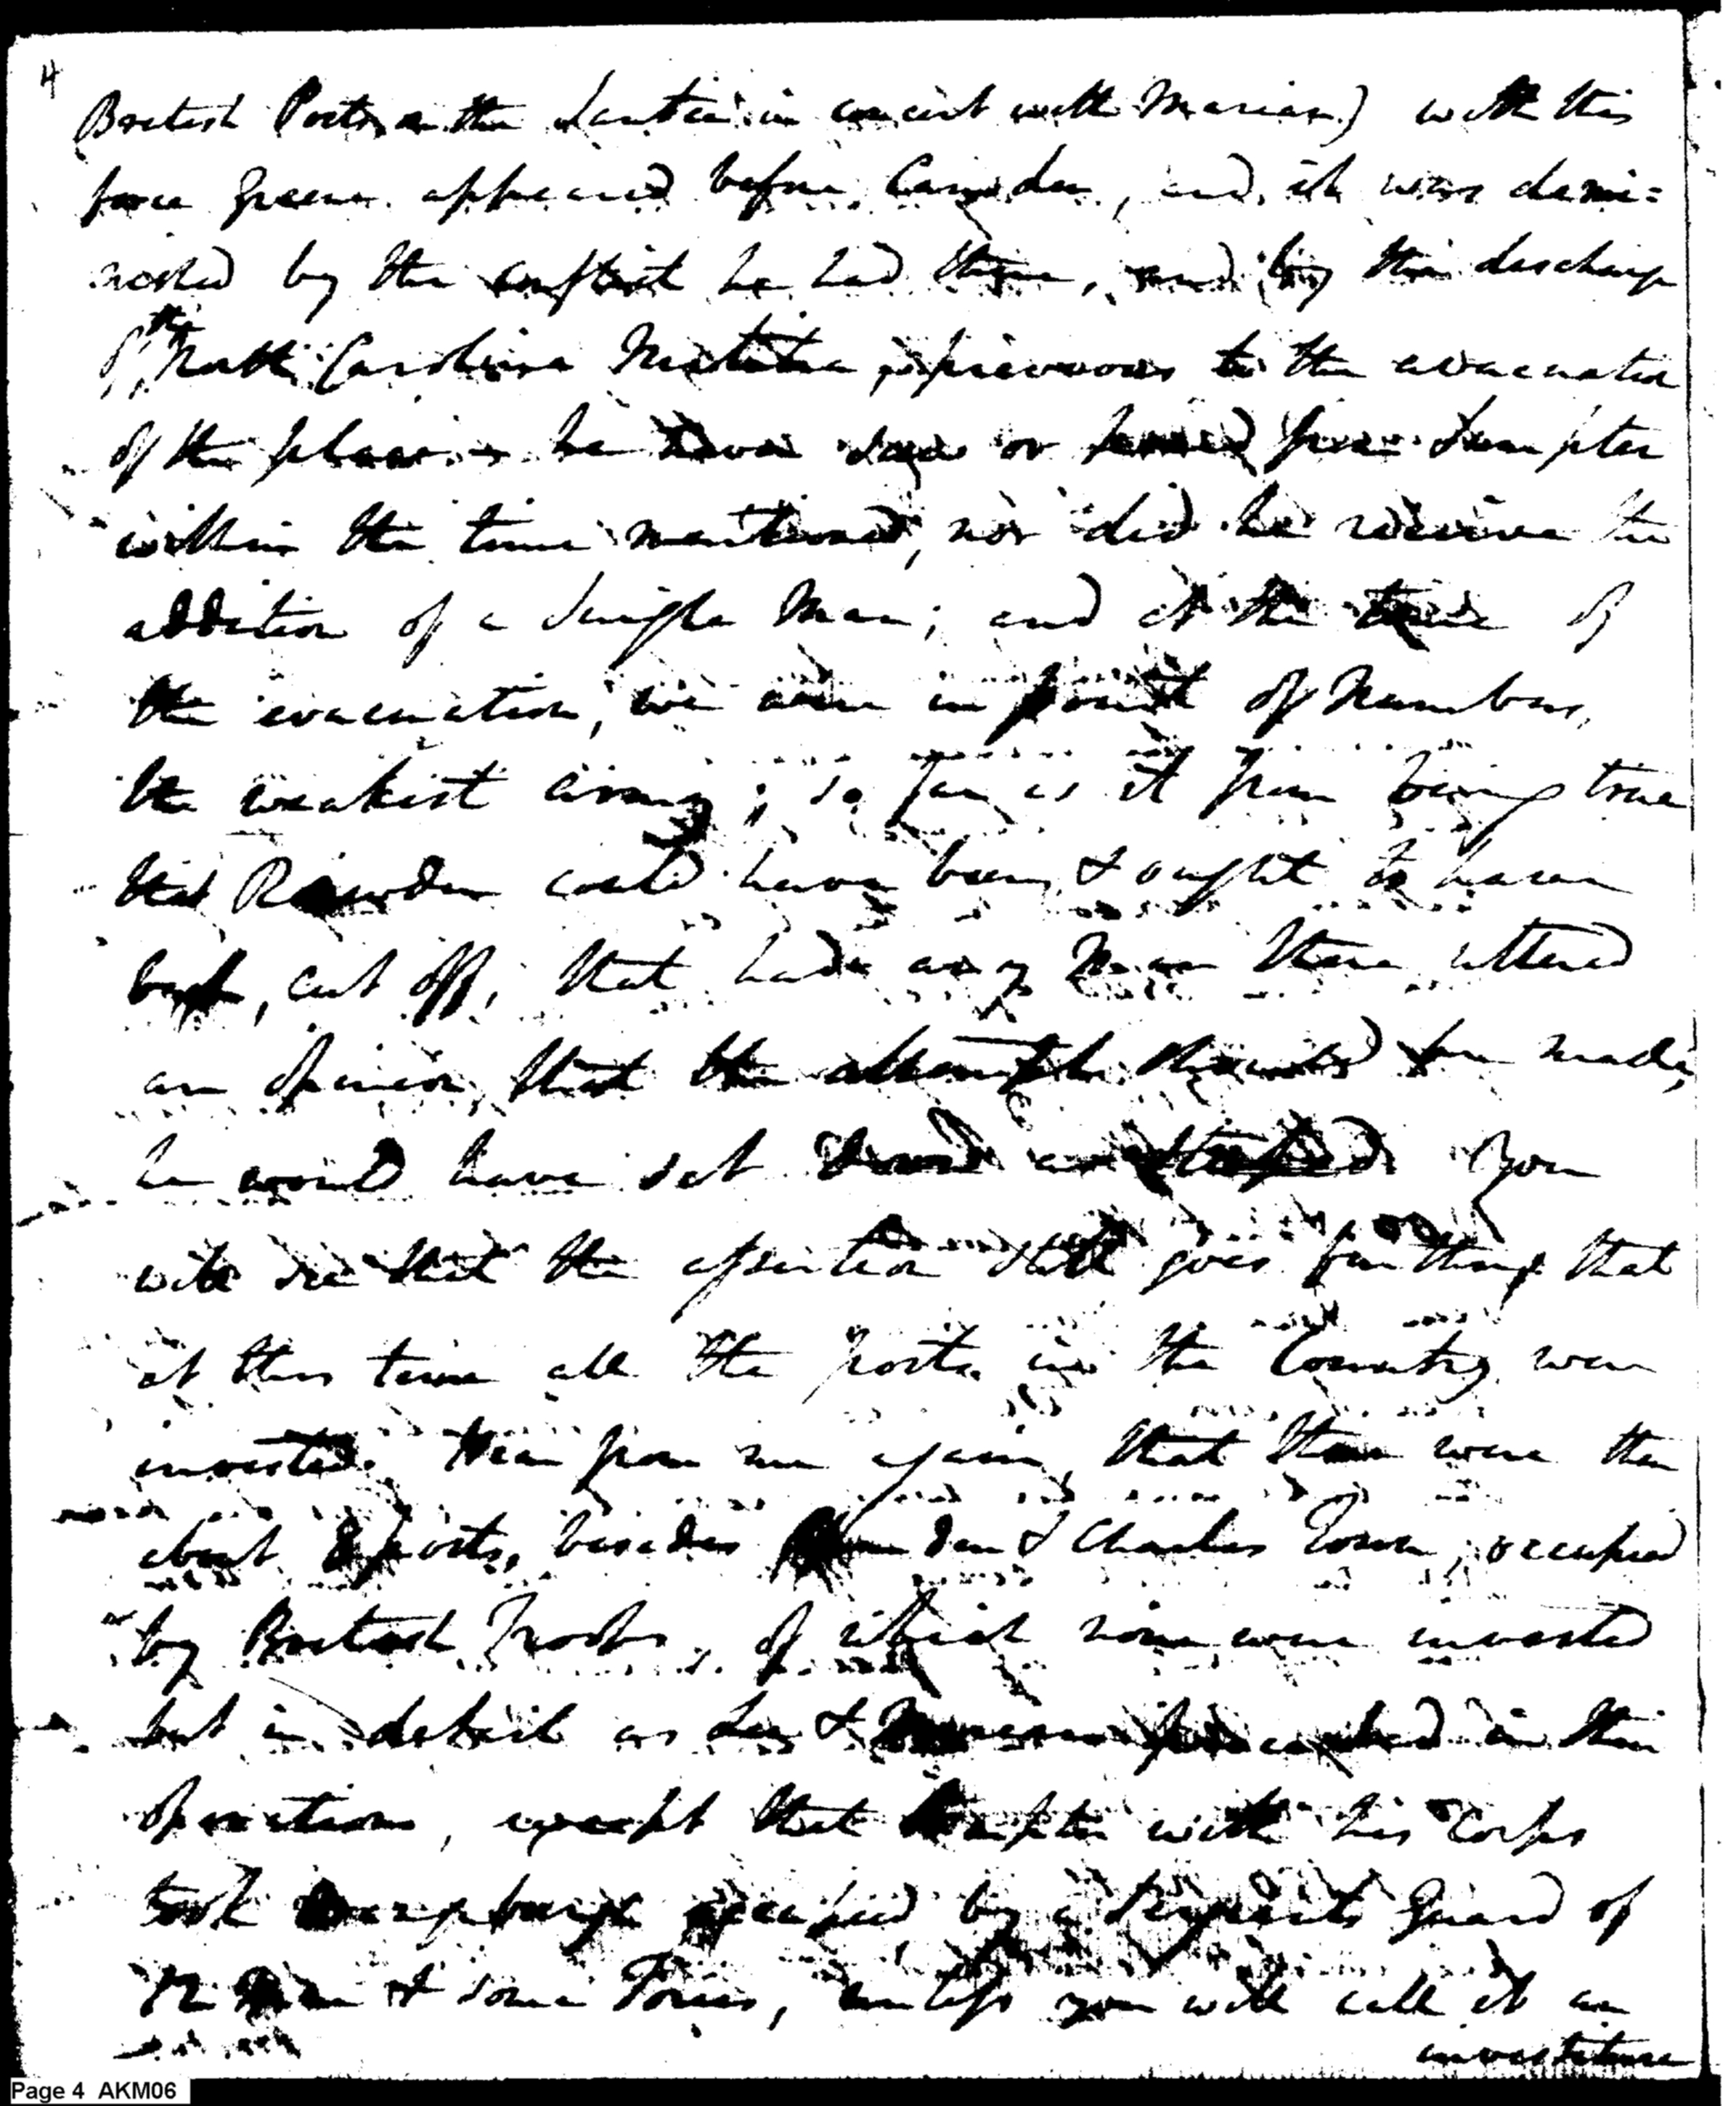 4
British Posts on the Santee in concert with Marion) with this
force Greene appeared before Camden, and it was dimi=
nished by the conflict he had there, and by the discharge
of the North Carolina Militia, previous to the evacuation
of the place; he never saw or heard from Sumpter
within the time mentioned, nor did he receive the
addition of a Single Man; and at the time of
the evacuation, we were in point of Numbers,
the weakest army; so far is it from being true
that Rawdon could have been, & ought to have
been, cut off, that had any Man there uttered
an opinion, that the attempt should be made,
he would have set down as stupid. You
will see that the assertion still goes further, that
at this time all the posts in the Country were
invested. Hear from me again, that there were then
about 8 posts, besides Camden & Charles Town, occupied
by British Troops, of which none were invested
but in detail as Lee & Marion proceeded in their
operations, except that Sumpter with his Corps
took Orangeburgh occupied by a Serjeants Guard of
12 Men & some Tories, unless you will call it an
investiture
Page 4 AKM06